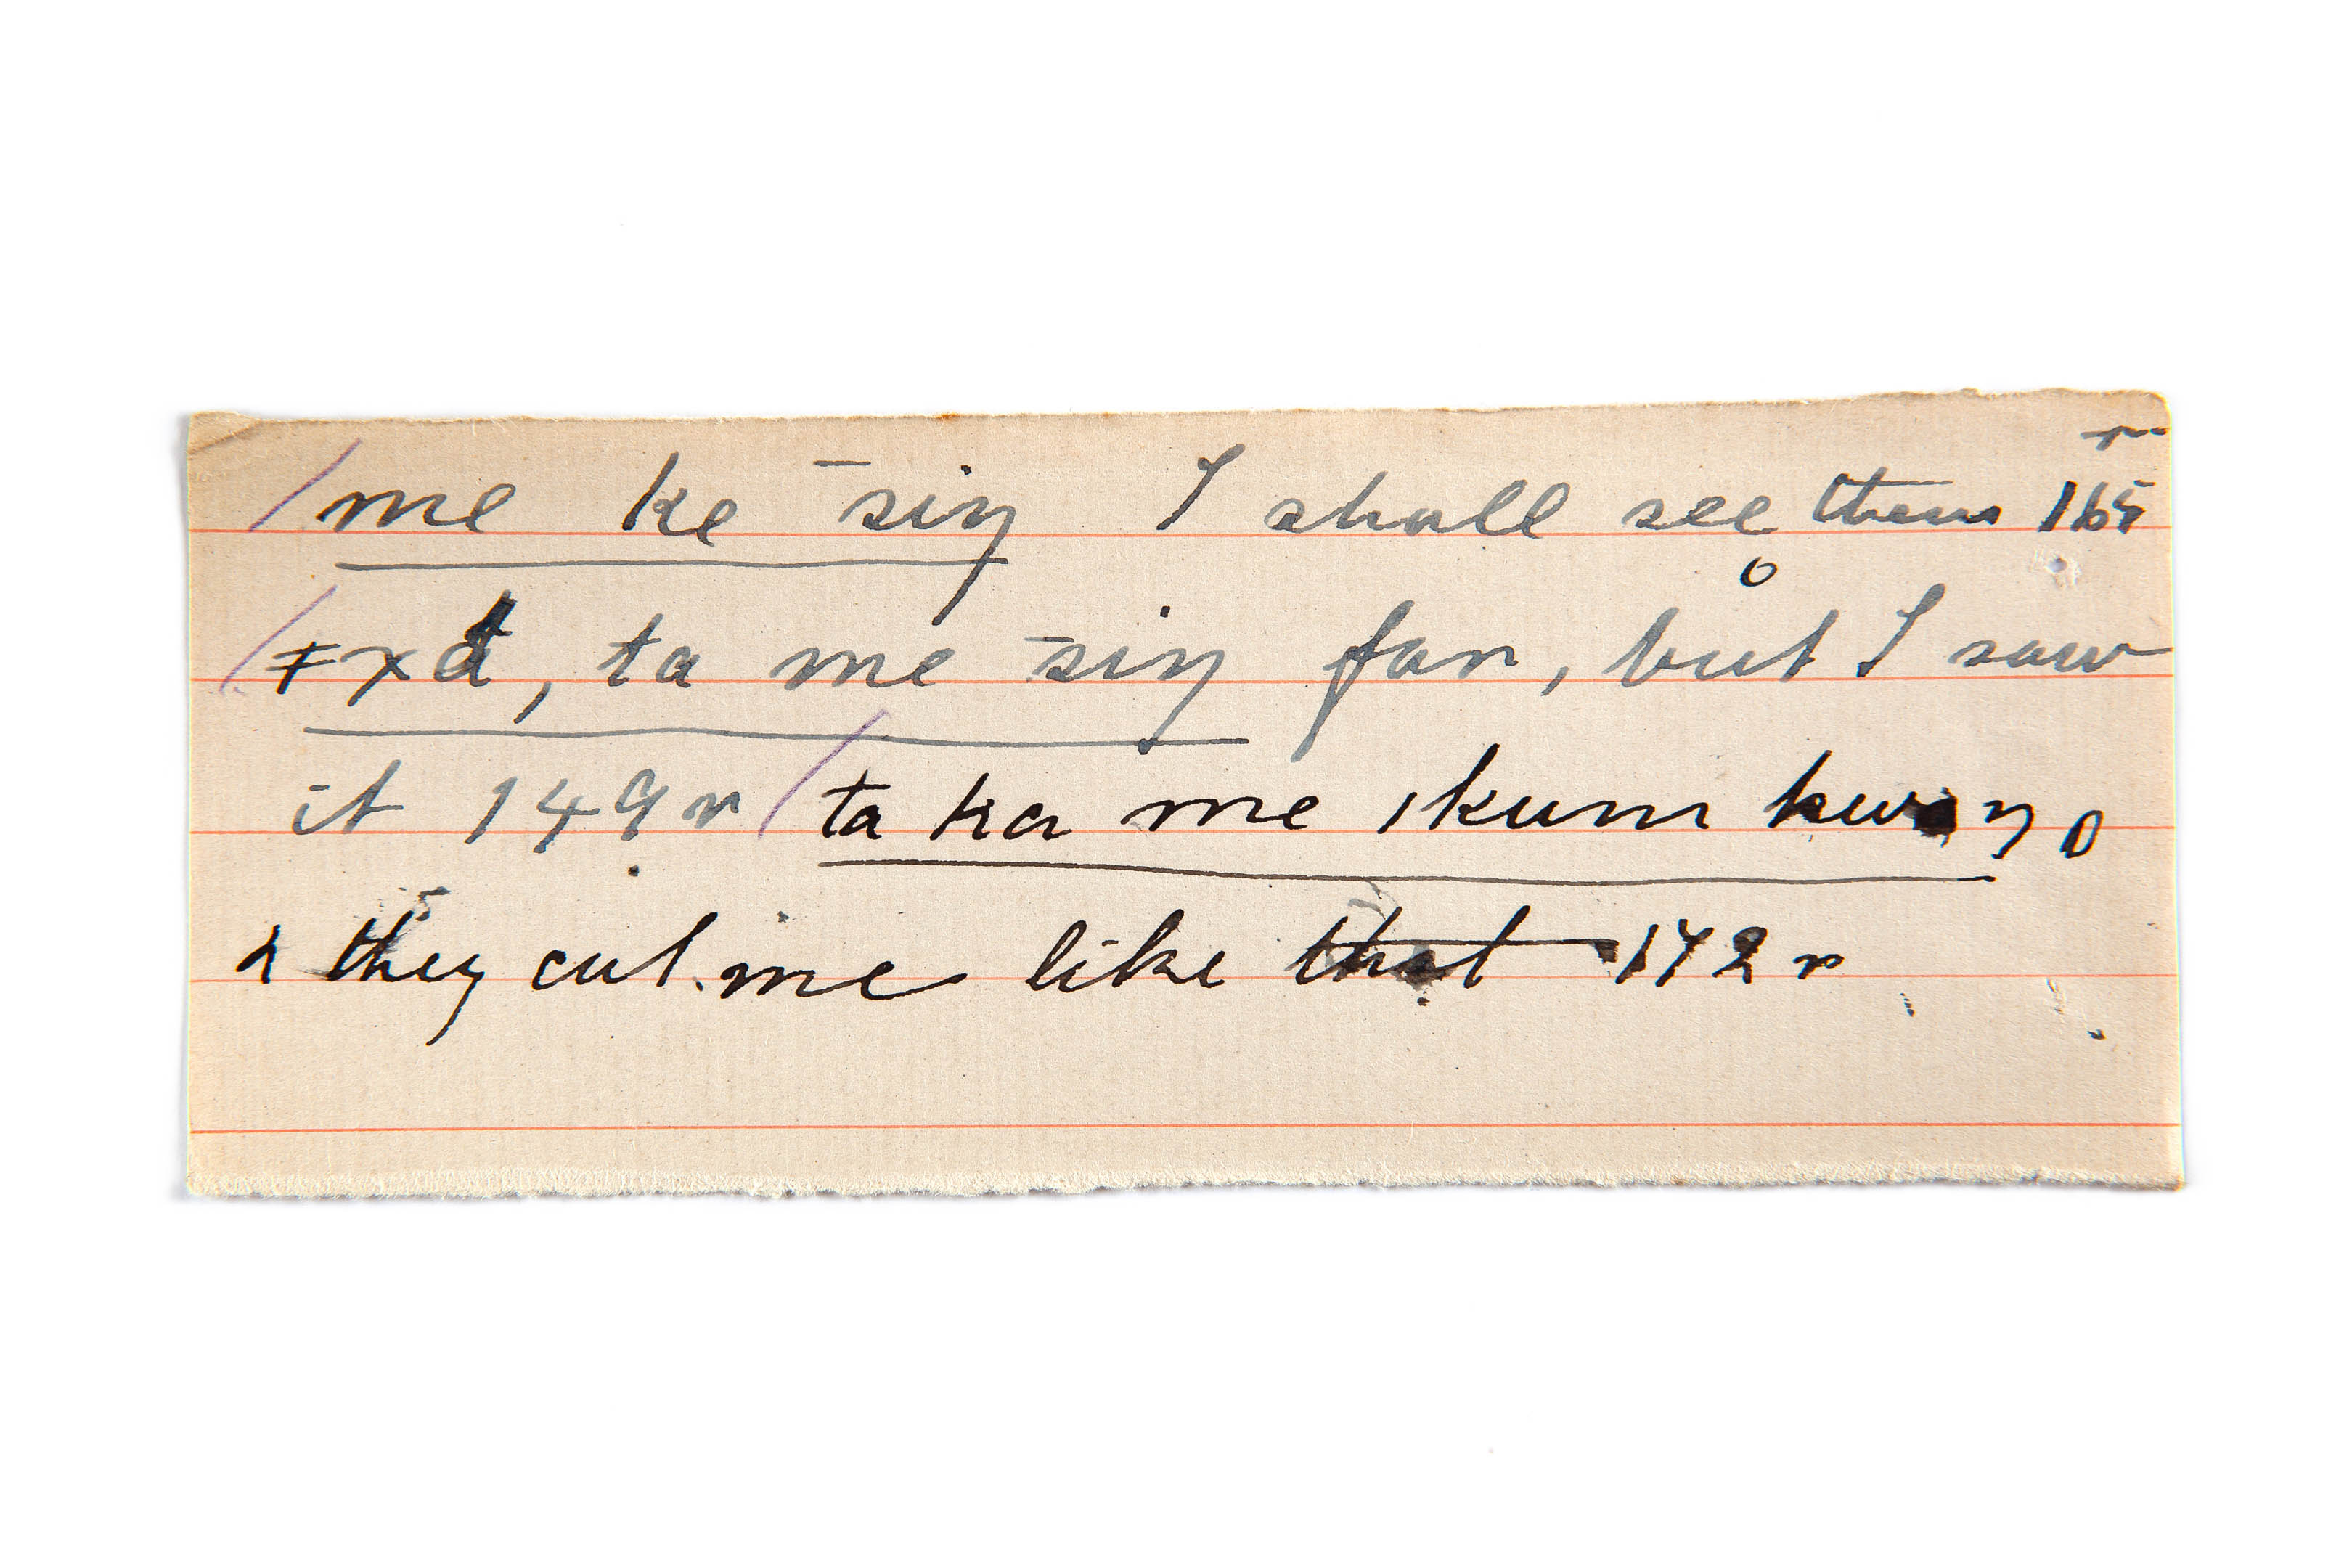 /me ke ‾siŋ I shall see them 165 r
/ǂxa, ta me siŋ far, but I saw
it 149 r /ta ka me ıkum
& they cut me like that 172 r